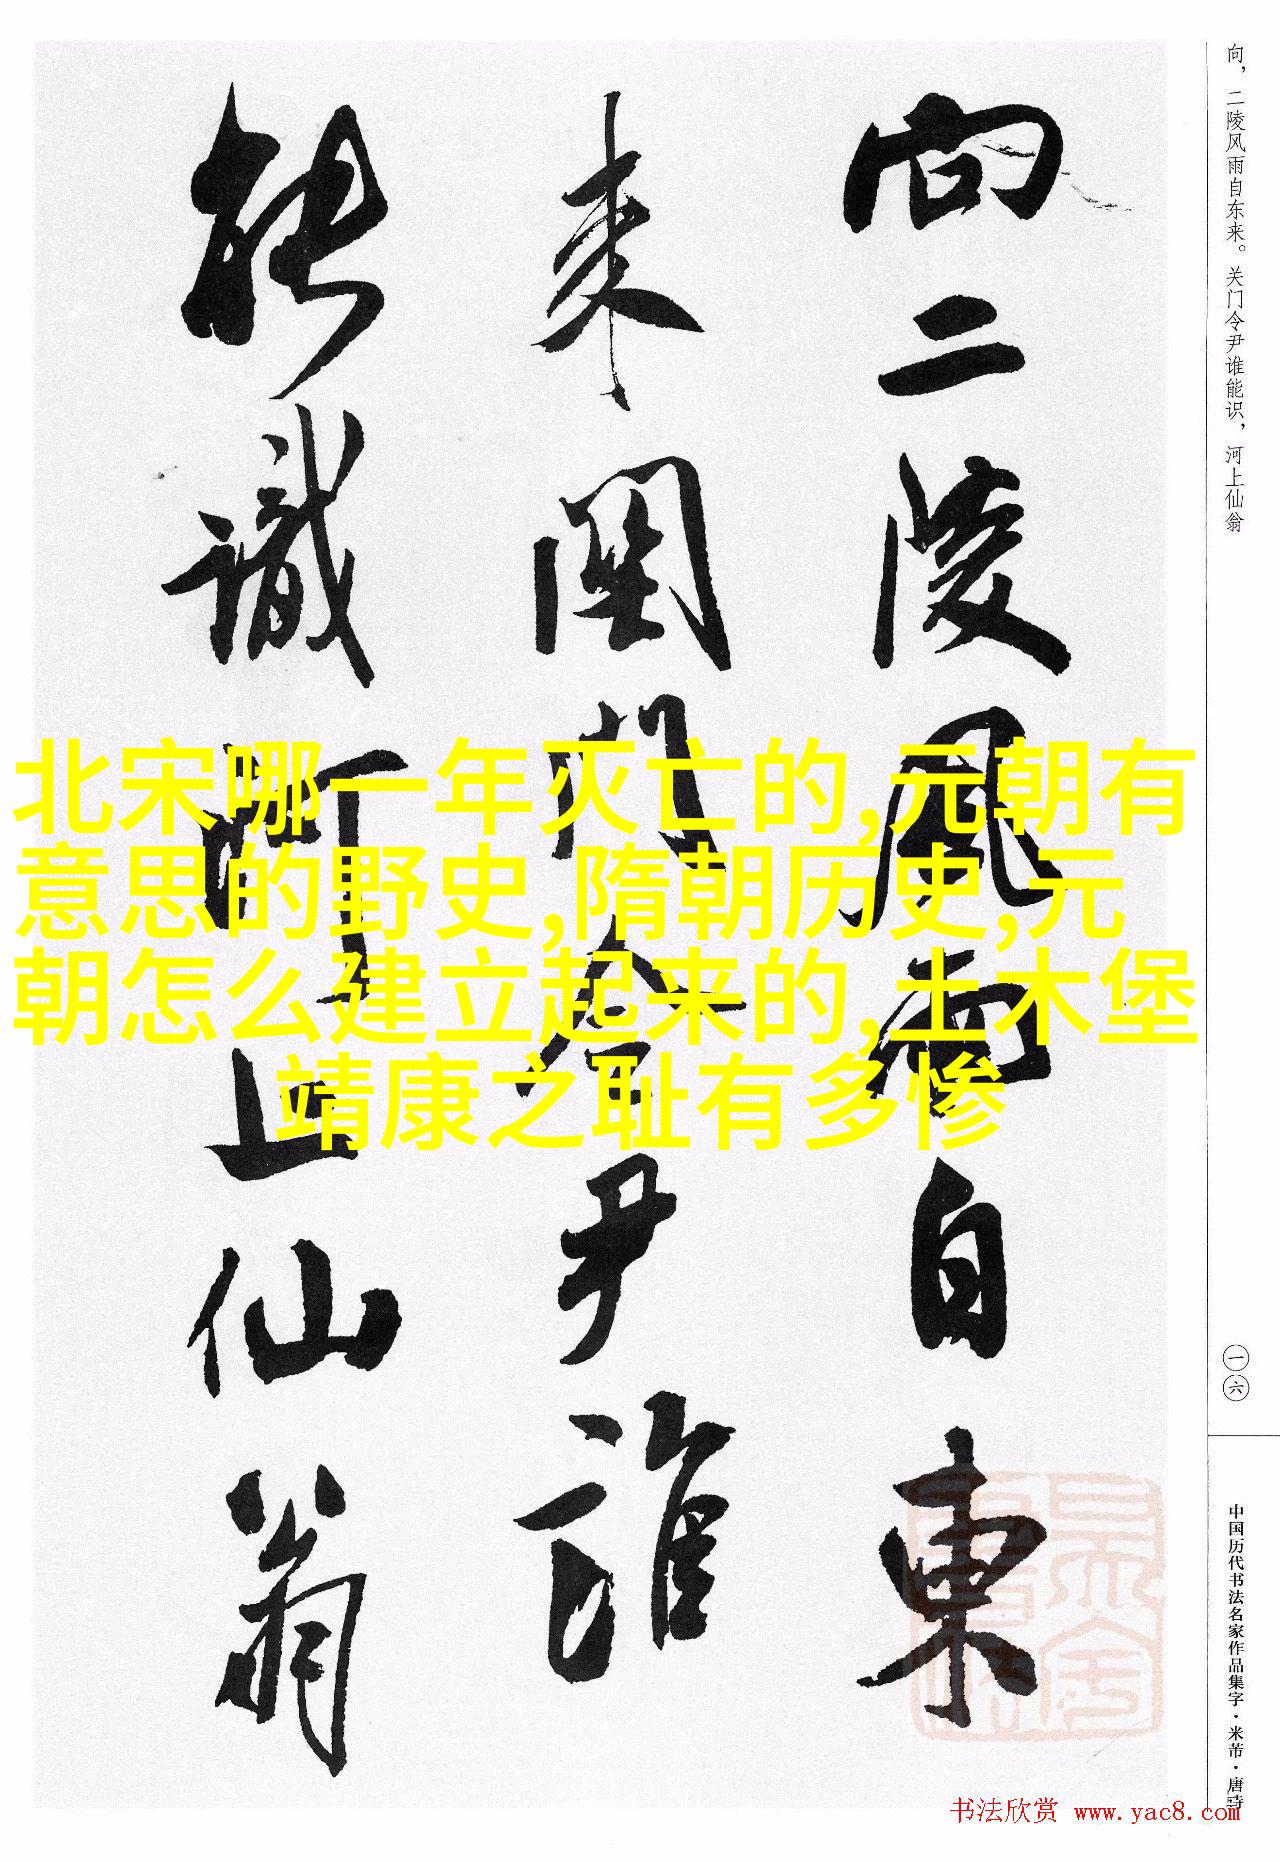 向，二陵风雨自东来。关门令尹谁能识，河上仙翁
向二陵风雨自东
来關門令尹誰
能識河上仙翁
北宋哪一年灭亡的,元朝有
意思的野史,隋朝历史,元
朝怎么建立起来的,土木堡
靖康之耻有多惨
一六
中国历代书法名家作品集字·米芾·唐诗
书法欣赏 www.yac8.com